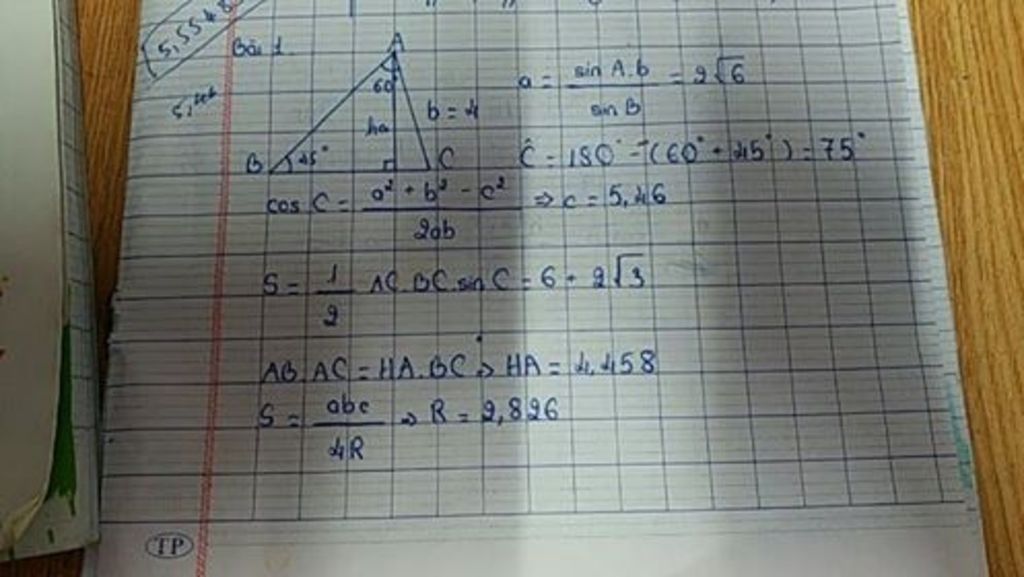 5,5548
5,46
Bài 1
A
60
ha
b = 4
B
45°
C
a = sin A.b / sin B = 2√6
Ĉ = 180° - (60° + 45°) = 75°
cos C = a² + b² - c² / 2ab ⇒ c = 5,46
S = 1/2 AC.BC.sin C = 6 + 2√3
AB.AC = HA.BC ⇒ HA = 4,458
S = abc / 4R ⇒ R = 2,826
TP